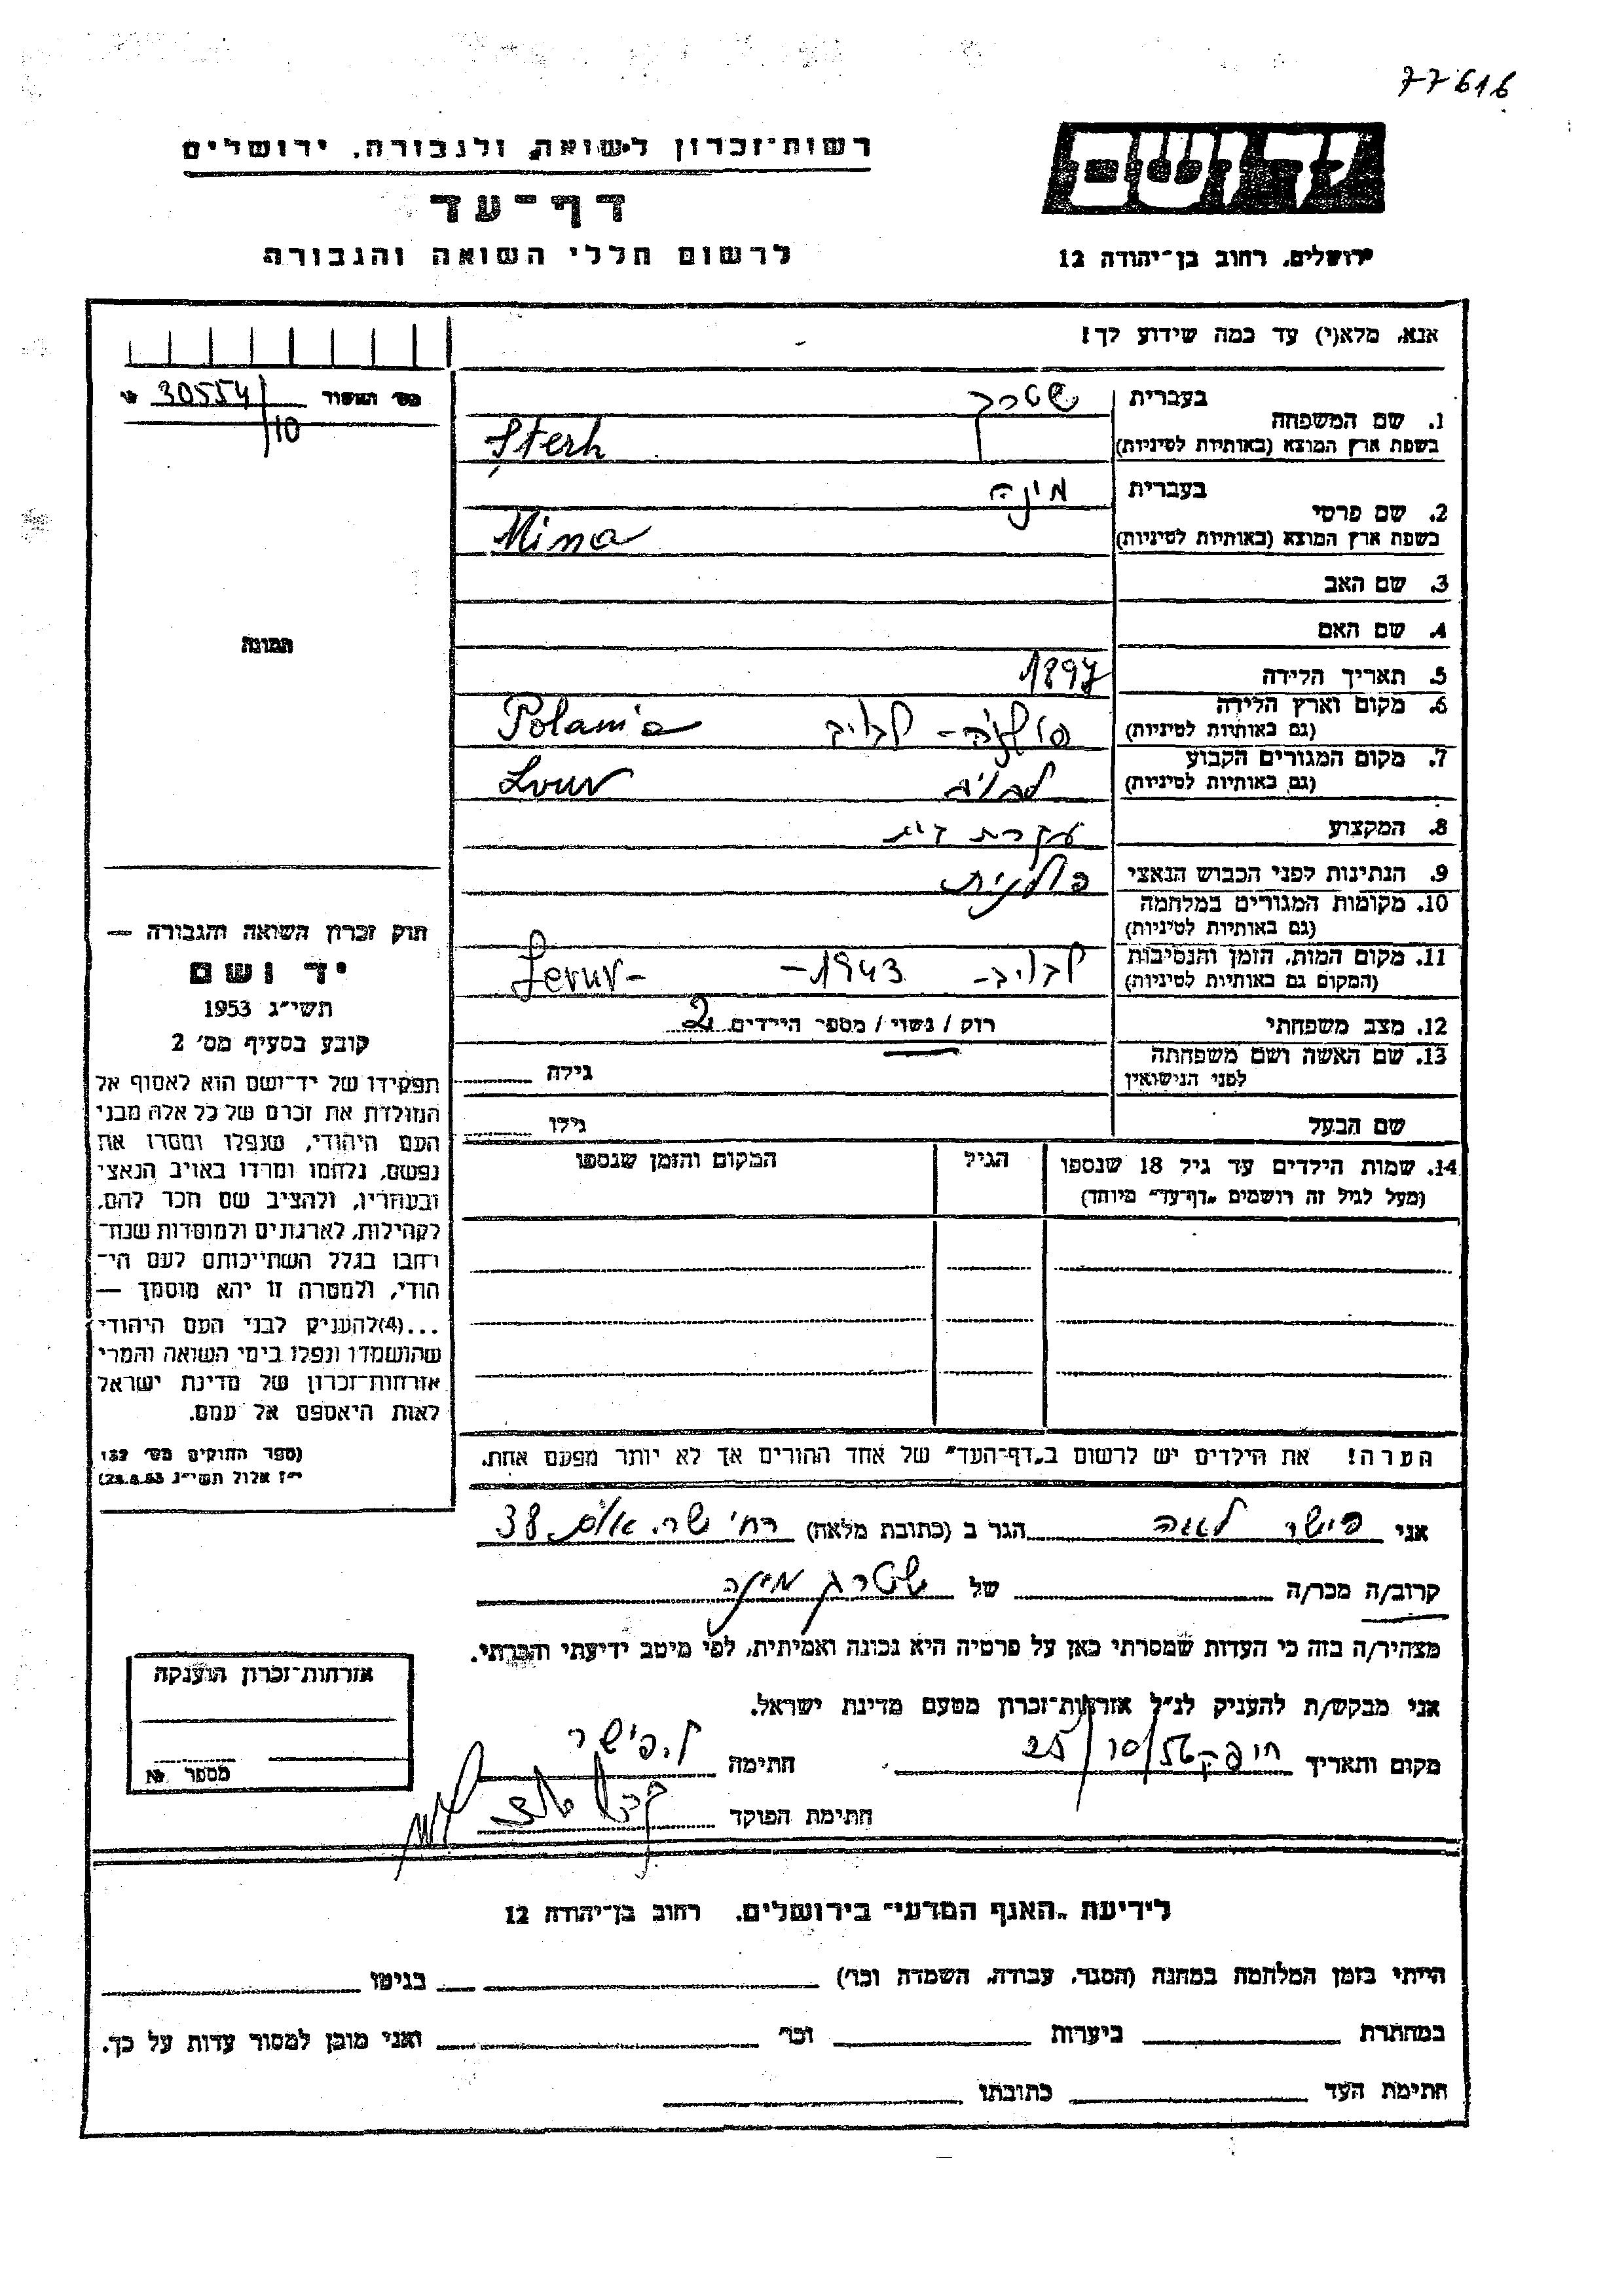 77616
רשות־זכרון לשואה ולגבורה, ירושלים
דף־עד
לרשום חללי השואה והגבורה
יד ושם
ירושלים, רחוב בן־יהודה 12
אנא, מלא(י) עד כמה שידוע לך!
30554/10
1. שם המשפחה
בעברית שטרך
בשפת ארץ המוצא (באותיות לטיניות) Sterh
2. שם פרטי
בעברית מינה
בשפת ארץ המוצא (באותיות לטיניות) Mina
3. שם האב
4. שם האם
5. תאריך הלידה 1897
6. מקום וארץ הלידה
(גם באותיות לטיניות) פולניה - לבוב Polania
7. מקום המגורים הקבוע
(גם באותיות לטיניות) Lvuv
8. המקצוע עקרת בית
9. הנתינות לפני הכבוש הנאצי פולנית
10. מקומות המגורים במלחמה
(גם באותיות לטיניות)
11. מקום המות, הזמן והנסיבות
(המקום גם באותיות לטיניות) - 1943 -
12. מצב משפחתי רוק / נשוי / מספר הילדים 2
13. שם האשה ושם משפחתה
לפני הנישואין גילה
שם הבעל גילו
14. שמות הילדים עד גיל 18 שנספו
(מעל לגיל זה רושמים "דף־עד" מיוחד)
הגיל
המקום והזמן שנספו
הערה! את הילדים יש לרשום ב"דף־העד" של אחד ההורים אך לא יותר מפעם אחת.
התמונה
חוק זכרון השואה והגבורה —
יד ושם
תשי״ג 1953
קובע בסעיף מס׳ 2
תפקידו של יד־ושם הוא לאסוף אל
המולדת את זכרם של כל אלה מבני
העם היהודי, שנפלו ומסרו את
נפשם, נלחמו ומרדו באויב הנאצי
ובעוזריו, ולהציב שם וזכר להם,
לקהילות, לארגונים ולמוסדות שנח־
רבו בגלל השתייכותם לעם הי־
הודי, ולמטרה זו יהא מוסמך —
...(4)להעניק לבני העם היהודי
שהושמדו ונפלו בימי השואה והמרי
אזרחות־זכרון של מדינת ישראל
לאות היאספם אל עמם.
(ספר החוקים מס׳ 132
י״ז אלול תשי״ג 28.8.53)
אני פישר לאה הגר ב (כתובת מלאה) רח׳ 38
קרוב/ה מכר/ה של שטרך מינה
מצהיר/ה בזה כי העדות שמסרתי כאן על פרטיה היא נכונה ואמיתית, לפי מיטב ידיעתי והכרתי.
אני מבקש/ת להעניק לנ״ל אזרחות־זכרון מטעם מדינת ישראל.
מקום ותאריך 25/10/56 חתימה ל.פישר
חתימת הפוקד
אזרחות־זכרון הוענקה
מספר №
לידיעת "האגף המדעי" בירושלים, רחוב בן־יהודה 12
הייתי בזמן המלחמה במחנה (הסגר, עבודה, השמדה וכו׳) בגיטו
במחתרת ביערות וכו׳ ואני מוכן למסור עדות על כך.
חתימת העד כתובתו